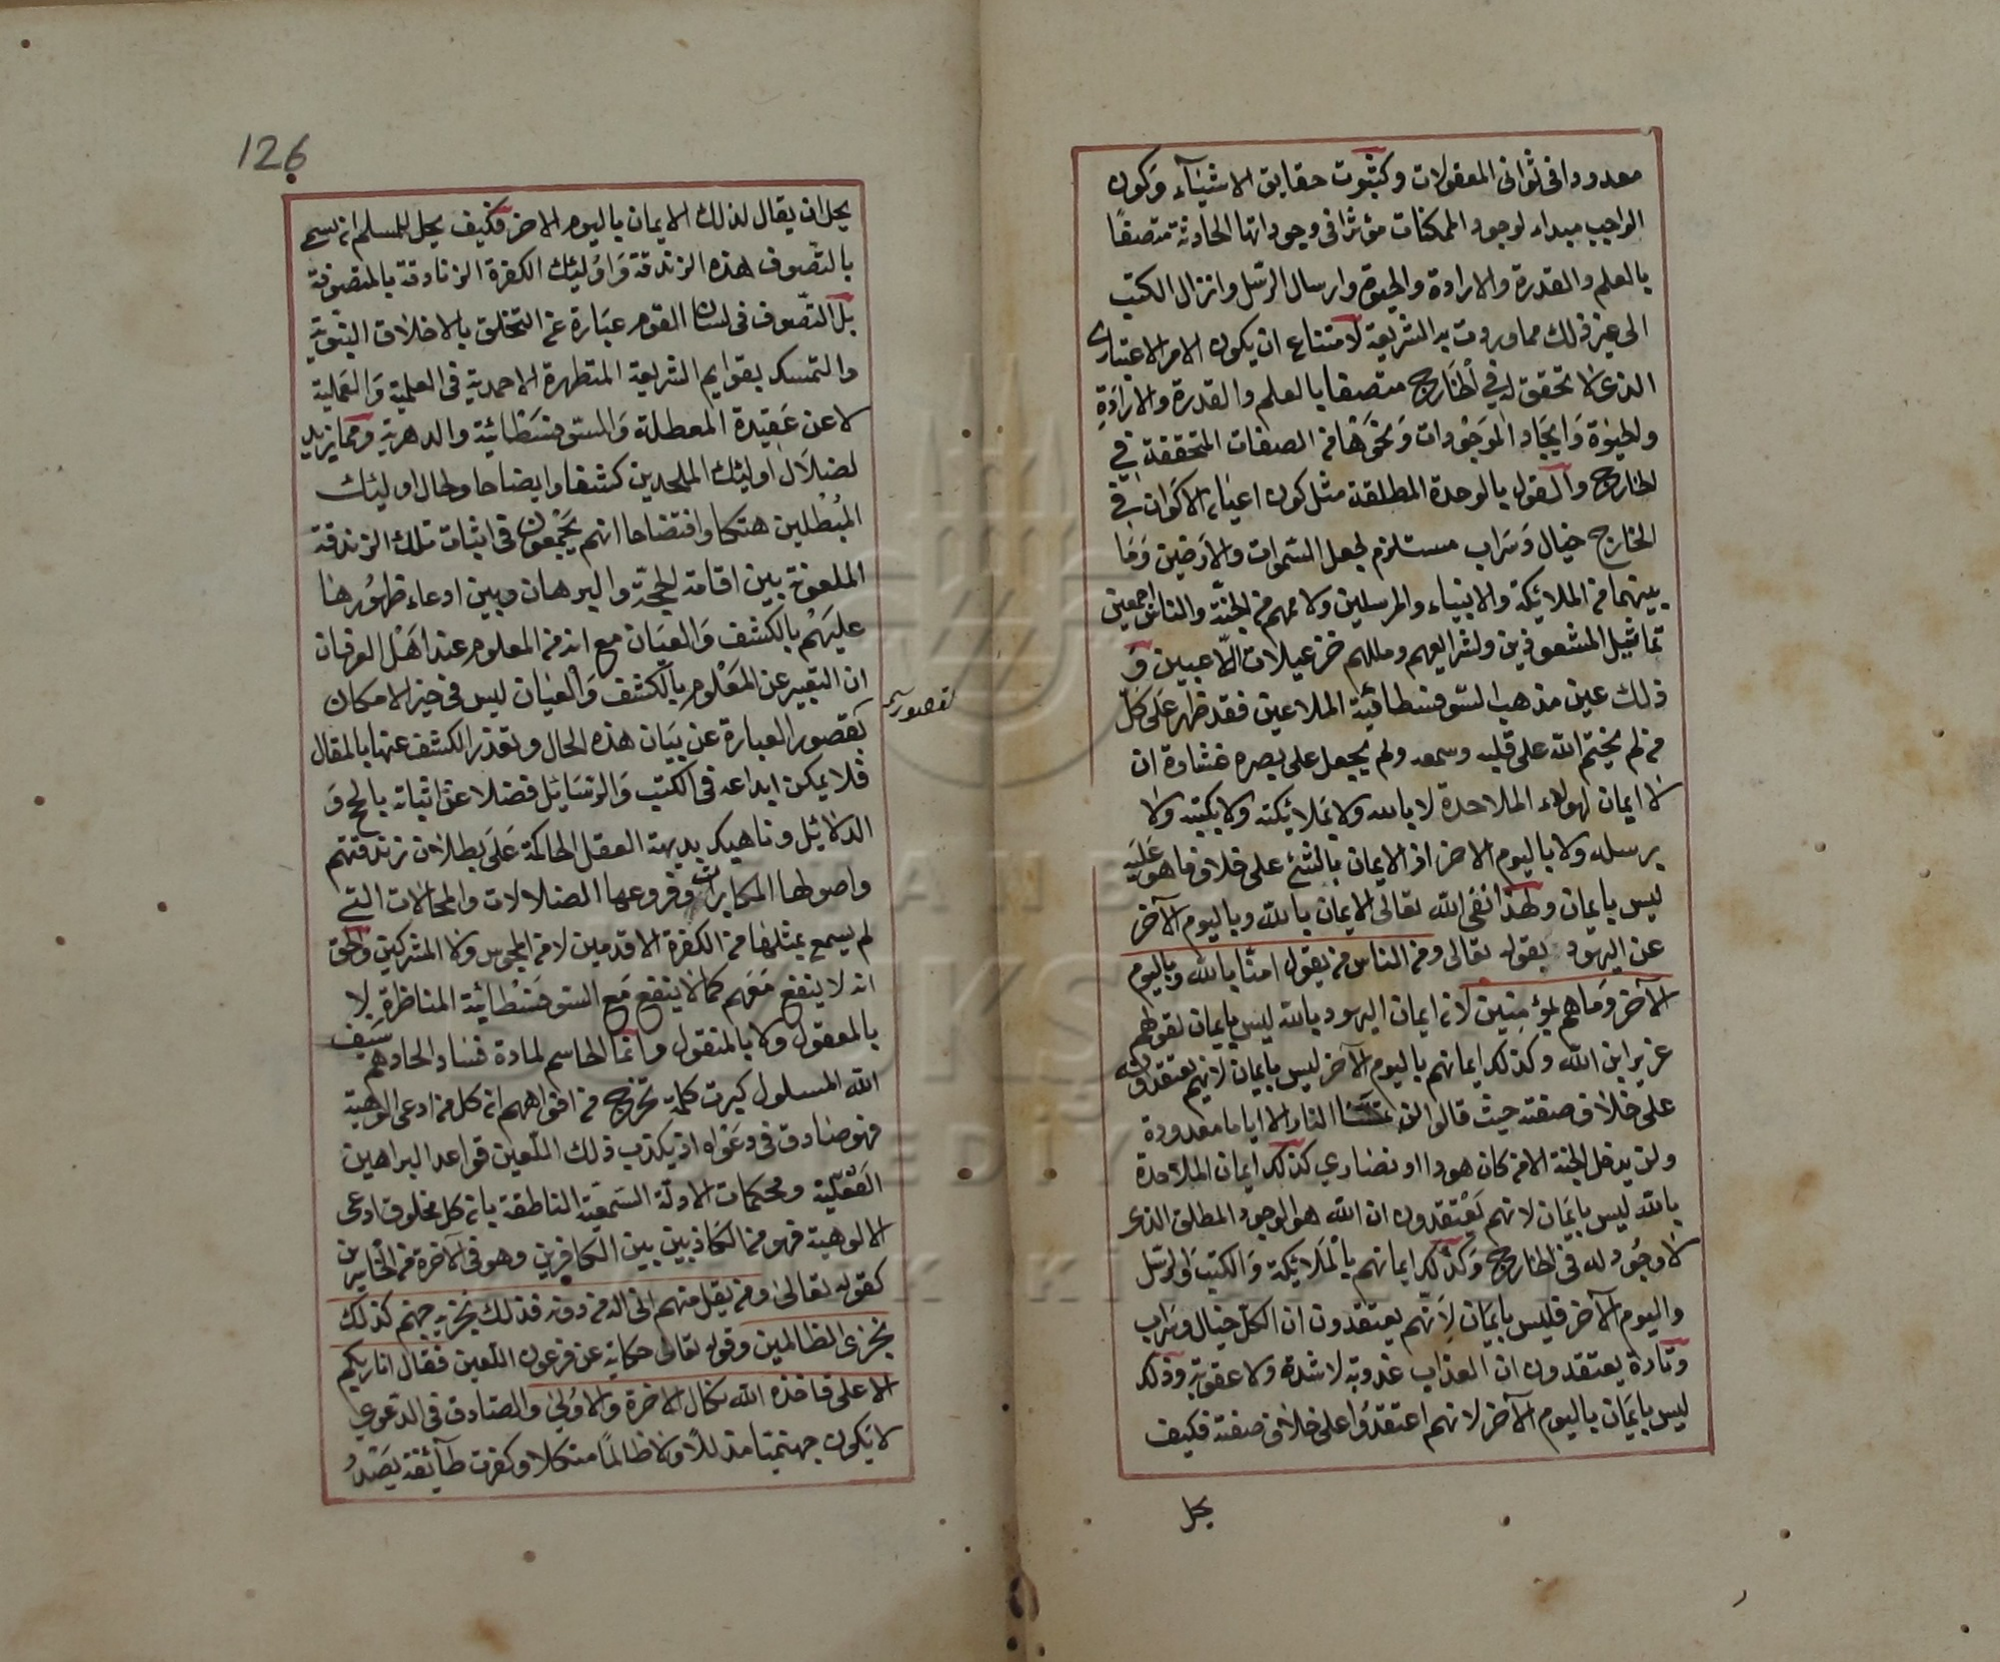 معدودا فى ثوانى المعقولات وكثبوت حقايق الاشيآء وكون
الواجب مبداء لوجود الممكنات مؤثرا فى وجوداتها الحادثة متصفًا
بالعلم والقدرة والارادة والحيوة وارسال الرسل وانزال الكتب
الى غير ذلك مما وردت به الشريعة لامتناع ان يكون الامر الاعتبارى
الذى لا تحقق له في الخارج متصفا بالعلم والقدرة والارادة
والحيوة وَايجاد الموَجُودات وَنحوَهَا من الصفات المتحققة في
الخارج والقول بالوحدة المطلقة مثل كون اعيان الاكوان في
الخارج خيال وَسَراب مستلزم لجعل السّموات والارضين وَمَا
بينهما من الملائكة والانبياء والمرسلين ولاممهم من الجنّة والناس اجمعين
تماثيل المشعوذين ولشرايعهم ومللهم خزعبلات اللّاعبين وَ
ذلك عين مذهب السّوفسطائية الملاعين فقد ظهر عَلى كلّ
من لم يختم الله على قلبه وسمعه ولم يجعل على بصره غشاوة ان
لا ايمان لهولاء الملاحدة لا بالله ولا بملائكته ولا بكتبه ولا
برسله ولا باليوم الاخر اذ الايمان بالشئ على خلاف ما هو عَليه
ليس بايمان ولهذا نفى الله تعالى الايمان بالله وباليوم الآخر
عن اليهود بقوله تعالى ومن الناس من يقول امنّا بالله وباليوم
الآخر وَما هم بمؤمنين لان ايمان اليهود بالله ليس بايمان لقولهم
عزير ابن الله وكذلك ايمانهم باليوم الآخر ليس بايمان لانهم يعتقدونه
على خلاف صفته حيث قالوا لن تمسّنا النار الا اياما معدودة
ولن يدخل الجنة الا من كان هودا او نصارى كذلك ايمان الملاحدة
بالله ليس بايمَان لانهم يَعْتقدون ان الله هو الوجود المطلق الذى
لا وجُود له فى الخارج وَكذلك ايمانهم بالمَلائكة وَالكتب وَالرسل
واليوم الآخر فليس بايمَان لانّهم يعتقدون ان الكل خيال وسَراب
وتارة يعتقدون ان العذاب عذوبة لا شدة ولا عقوبة وذلك
ليس بايمَان باليوم الآخر لانهم اعتقدوُا على خلاف صفته فكيف
يحل
126
يحل ان يقال لذلك الايمان باليوم الاخر فكيف يحل للمسلم ان يسمى
بالتّصوف هذه الزندقة وَاوُلئِك الكفرة الزنادقة بالمتصوّفة
بل التّصوف فى لسان القوم عبَارة عن التخلق بالاخلاق النبّوية
والتمسك بقوايم الشريعة المتطهرة الاحمدية فى العلمية وَالعَملية
لا عن عَقيدة المعطلة وَالسّوفسَطائية والدهرية ومما يزيد
لضلاَل اوليئك الملحدين كشفا وايضاحا ولحال اوليئك
المبُطلين هتكا وافتضاحا انهم يَجْمعون فى اثبات تلك الزندقة
الملعونة بين اقامة الحجّة والبرهان وبين ادعاء ظهُورها
عليهَمْ بالكشف وَالعيَان مع انه من المعلوم عند اهَل العرفان
ان التعبير عن المَعْلوم بالكشف وَالعيان ليس فى حيز الامكان
لقصور العبارة عن بيَان هذه الحال وتعذر الكشف عنها بالمقال
لقصور
فلا يمكن ايداعه فى الكتب وَالرسَايل فضلا عن اثباته بالحج وَ
الدلائل وناهيك بديهة العقل الحاكمة عَلَى بطلان زندقتهم
واصولها المكابرات وفروعها الضلالات والمحالات التى
لم يسمع بمثلها من الكفرة الاقدمين لا من المجوس ولا المشركين والحق
انه لا ينفع معَهم كما لا ينفع مَع السّوفسَطائية المناظرة لا
بالمعقول ولا بالمنقول وانما الحاسم لمادة فساد الحادهم سَيف
الله المسلول كبرت كلمة تخرج من افواههم ان كل من ادعى الوهية
فهو صَادق فى دعَواه اذ يكذب ذلك اللّعين قواعد البراهين
العَقلية ومحكمات الادلّة السَمعية الناطقة بان كل مخلوق ادعى
الالوهية فهو من الكاذبين بين الكافرين وهو فى الآخرة من الخاسرين
كقوله تعالىٰ ومن يقل منهم انى اله من دونه فذلك نجزيه جهنم كذلك
نجزى الظالمين وقوله تعالى حكاية عن فرعون اللّعين فقال انا ربكم
الاعلى فاخذه الله نكال الاخرة والاوُلىٰ والصّادق فى الدعوى
لا يكون جهنميّا مذللًا ولا ظالمًا متنكلا وكفرت طآئفة يَصّدُ